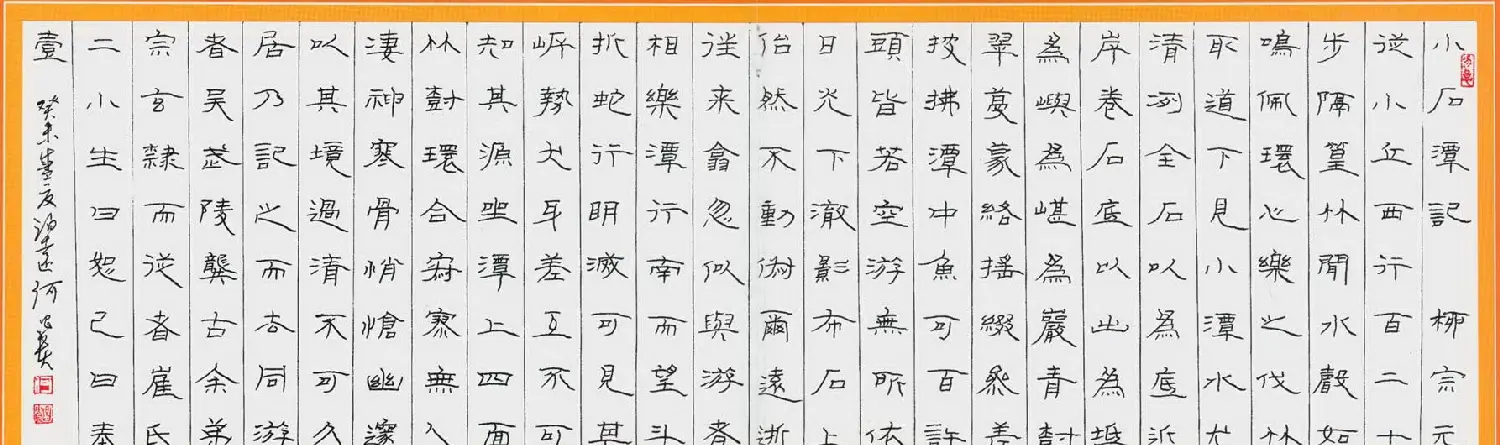 小石潭記 柳宗元
從小丘西行百二十
步隔篁竹聞水聲如
鳴佩環心樂之伐竹
取道下見小潭水尤
清冽全石以為底近
岸卷石底以出為坻
為嶼為嵁為巖青樹
翠蔓蒙絡搖綴參差
披拂潭中魚可百許
頭皆若空游無所依
日光下澈影布石上
佁然不動俶爾遠逝
往來翕忽似與游者
相樂潭行南而望斗
折蛇行明滅可見其
岸勢犬牙差互不可
知其源坐潭上四面
竹樹環合寂寥無人
淒神寒骨悄愴幽邃
以其境過清不可久
居乃記之而去同游
者吳武陵龔古余弟
宗玄隸而從者崔氏
二小生曰恕己曰奉
壹 癸未